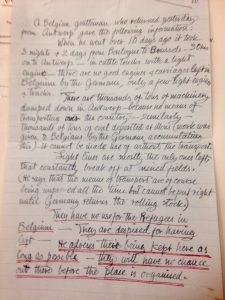 A Belgian gentleman who returned yesterday
from Antwerp gave the following information:
When he went over 10 days ago it took
3 nights & 2 days from Boulogne to Brussels -
on to Antwerp - in cattle trucks with a light
engine - there are no good engines & carriages left in
Belgium by the Germans, only a few light engines
& trucks.
There are thousands of tons of machinery
damped down in Antwerp - because no means of
transporting over the country - similarly
thousands of tons of coal deposited as their work was
given to Belgians by the Germans
this cannot be made use of without the transport.
Light lines are mostly the only ones left
that constantly break off at mended places.
(He says that the means of transport are of course
being improved all the time but cannot be put right
until Germany returns the rolling stock)
They have no use for the Refugees in
Belgium - They are despised for having
left - He advises their being kept here as
long as possible - they will have no chance
out there before the place is organised.